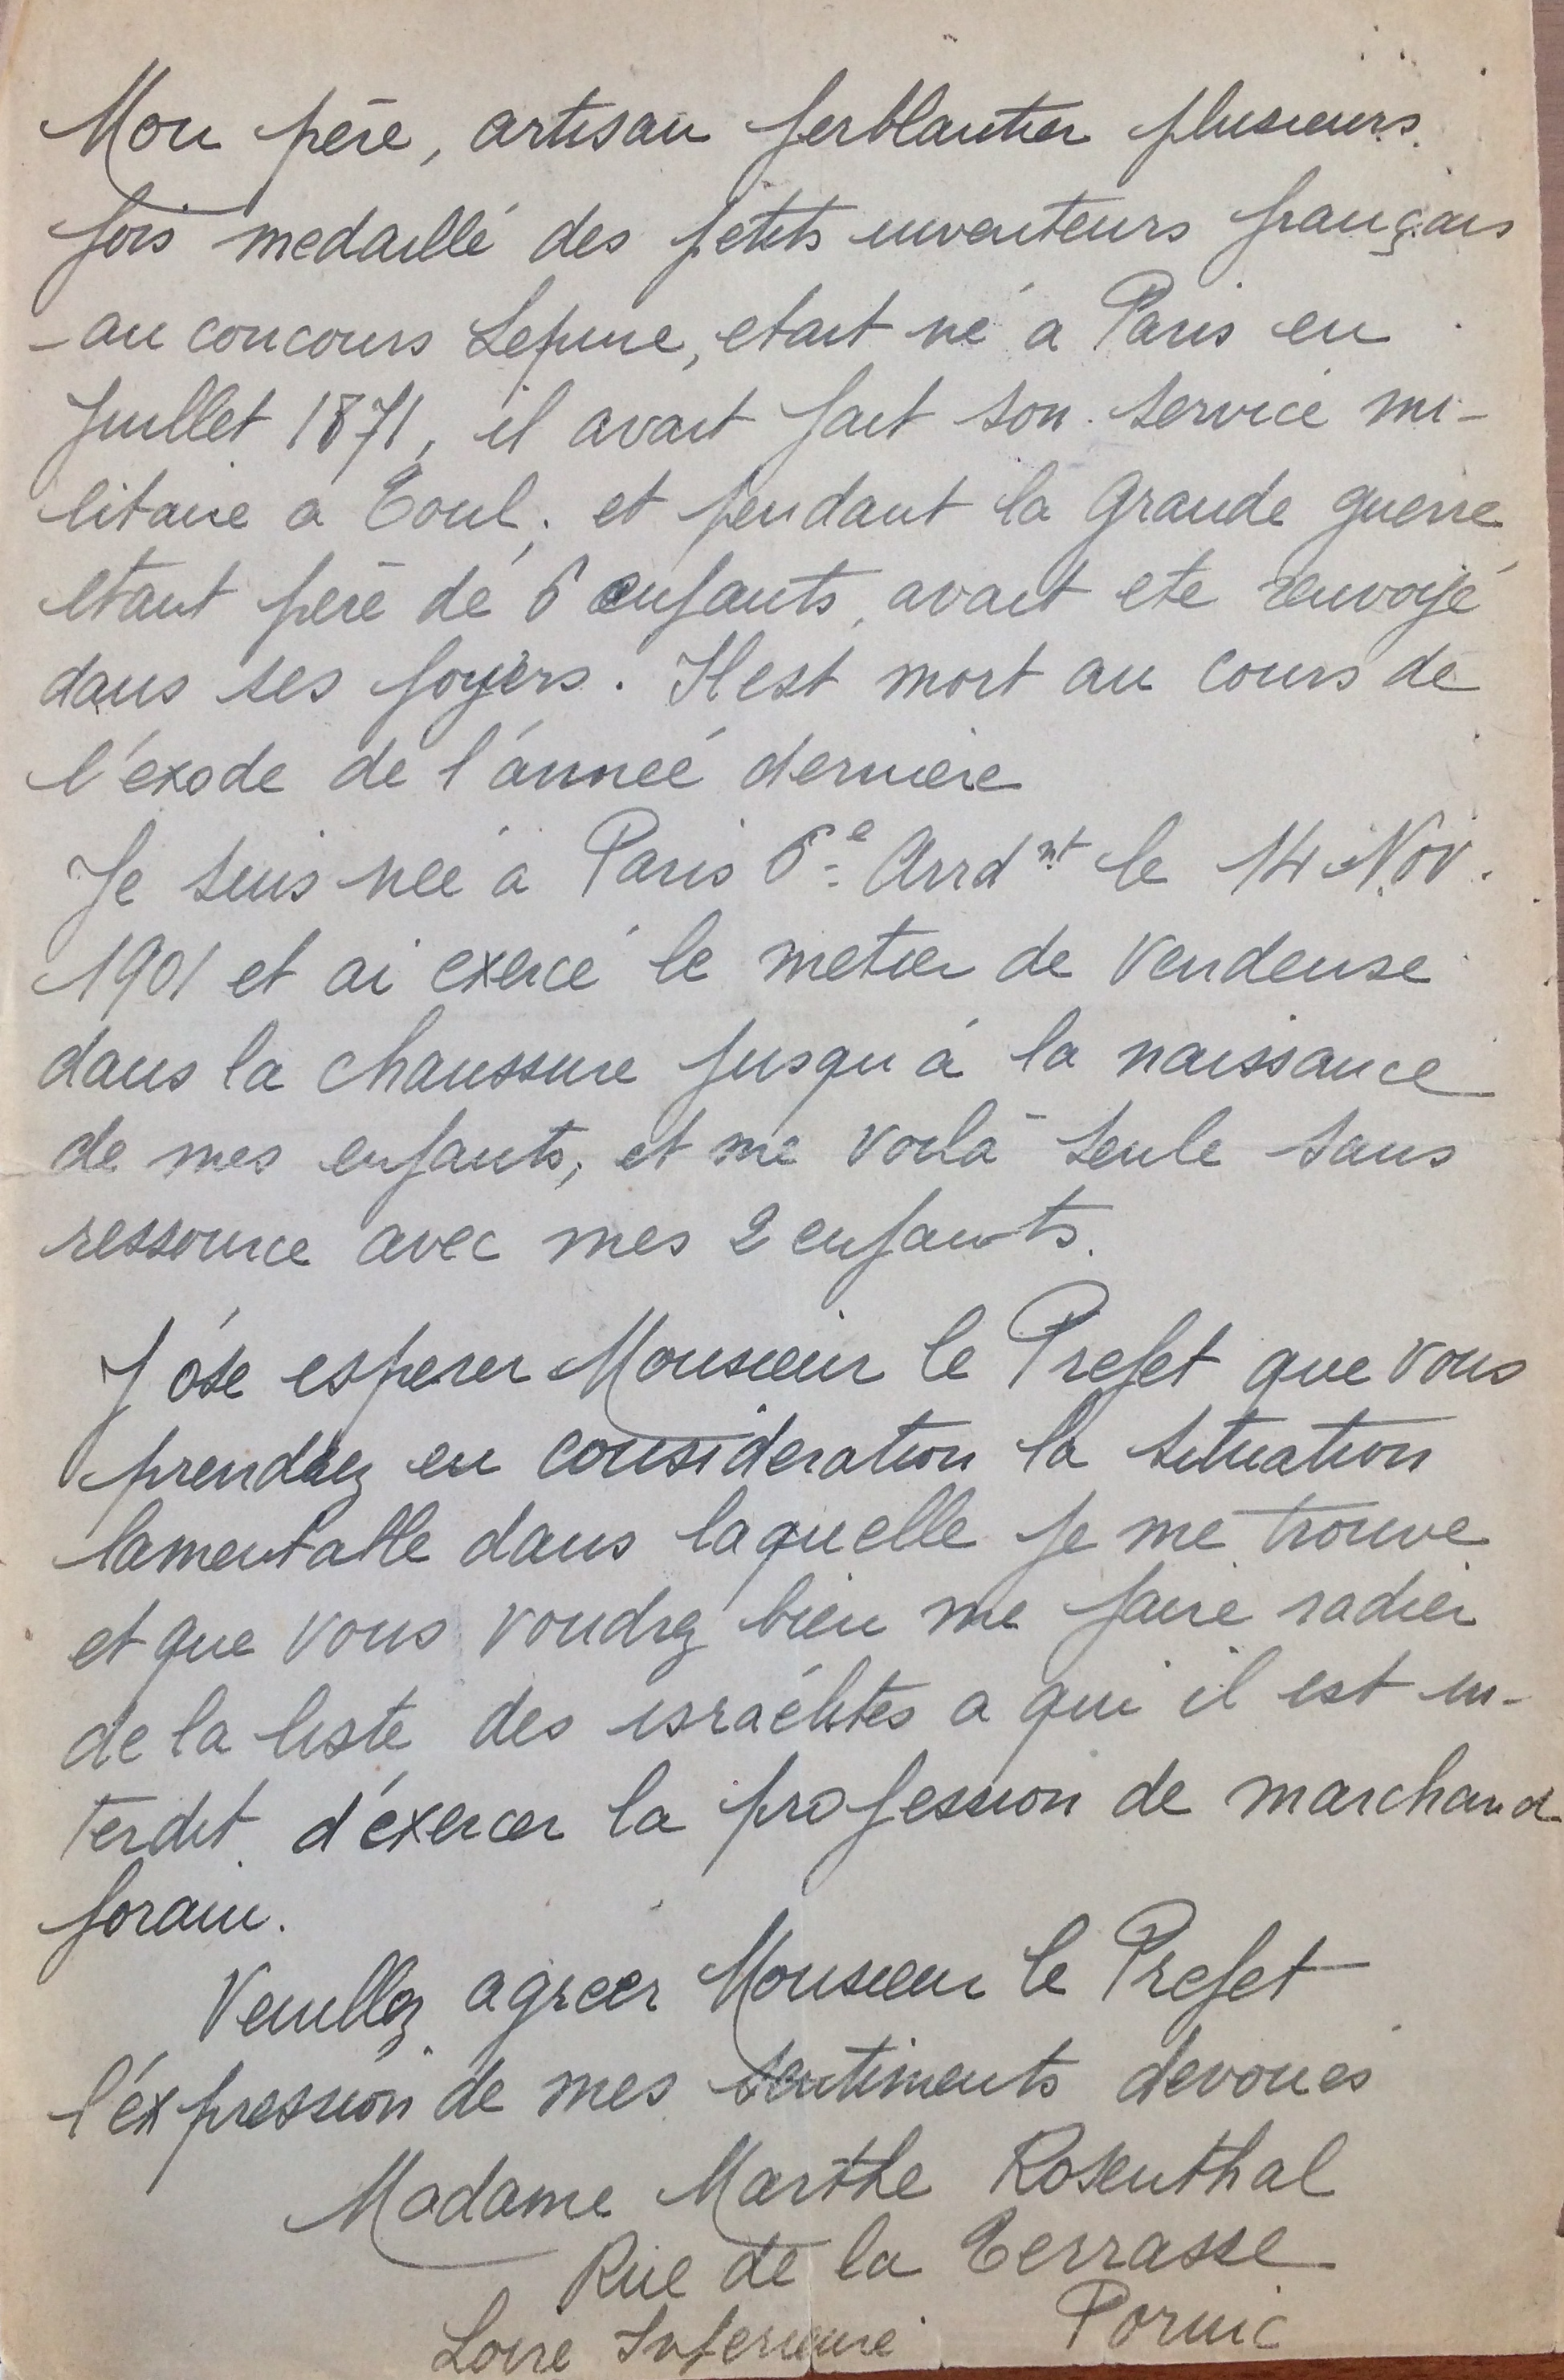 Mon père, artisan ferblantier plusieurs
fois medaillé des petits inventeurs français
au concours Lepine, etait né a Paris en
Juillet 1871, il avait fait son service mi-
litaire a Toul, et pendant la grande guerre
etant père de 6 enfants, avait ete renvoyé
dans ses foyers. Il est mort au cours de
l'exode de l'année derniere
Je suis née a Paris 6e Arrdnt le 14 Nov.
1901 et ai exercé le metier de vendeuse
dans la chaussure jusqu'à la naissance
de mes enfants, et me voilà seule sans
ressource avec mes 2 enfants.
J'ose esperer Monsieur le Prefet que vous
prendrez en consideration la situation
lamentable dans laquelle je me trouve
et que vous voudrez bien me faire radier
de la liste des israélites a qui il est in-
terdit d'éxercer la profession de marchand
forain.
Veuillez agreer Monsieur le Prefet
l'éxpression de mes sentiments devoués
Madame Marthe Rosenthal
Rue de la Terrasse
Loire Inferieure Pornic